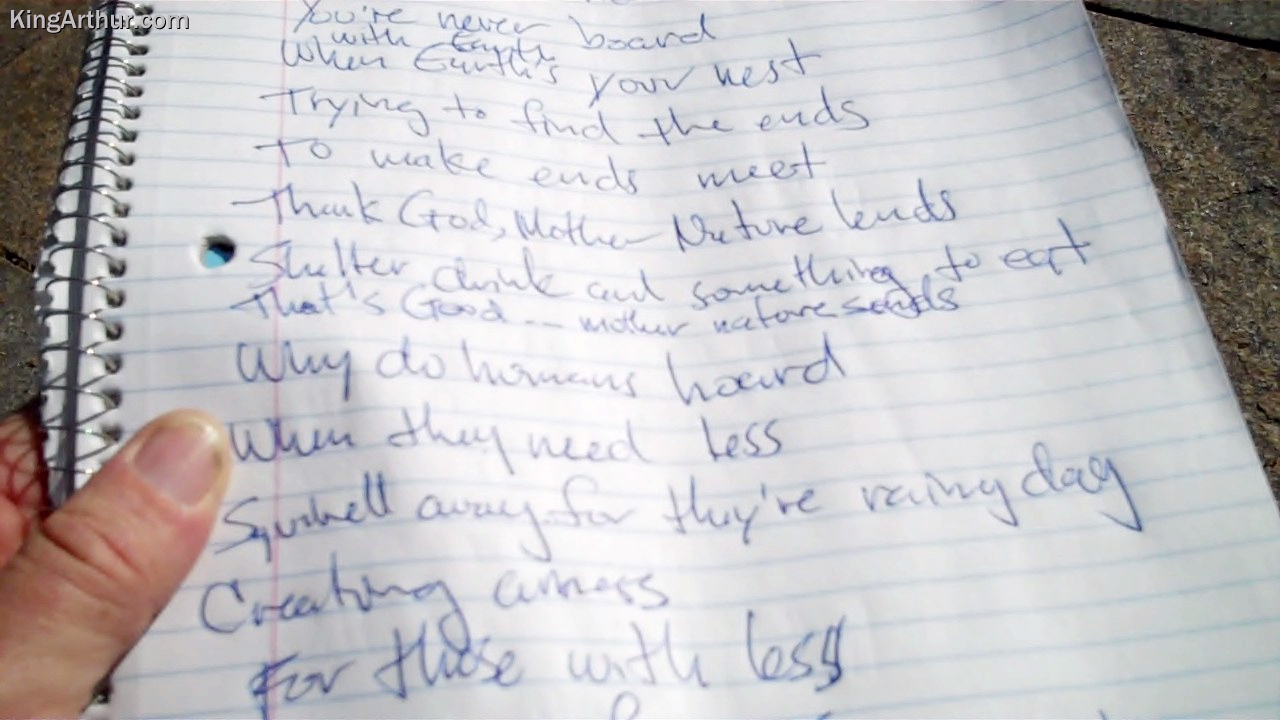 KingArthur.com
You're never board
with Earth
When Earth's your nest
Trying to find the ends
To make ends meet
Thank God, Mother Nature lends
Shelter drink and something to eat
That's Good -- mother nature sends
Why do humans hoard
When they need less
Squirrell away for they're rainy day
Creating a mess
For those with less